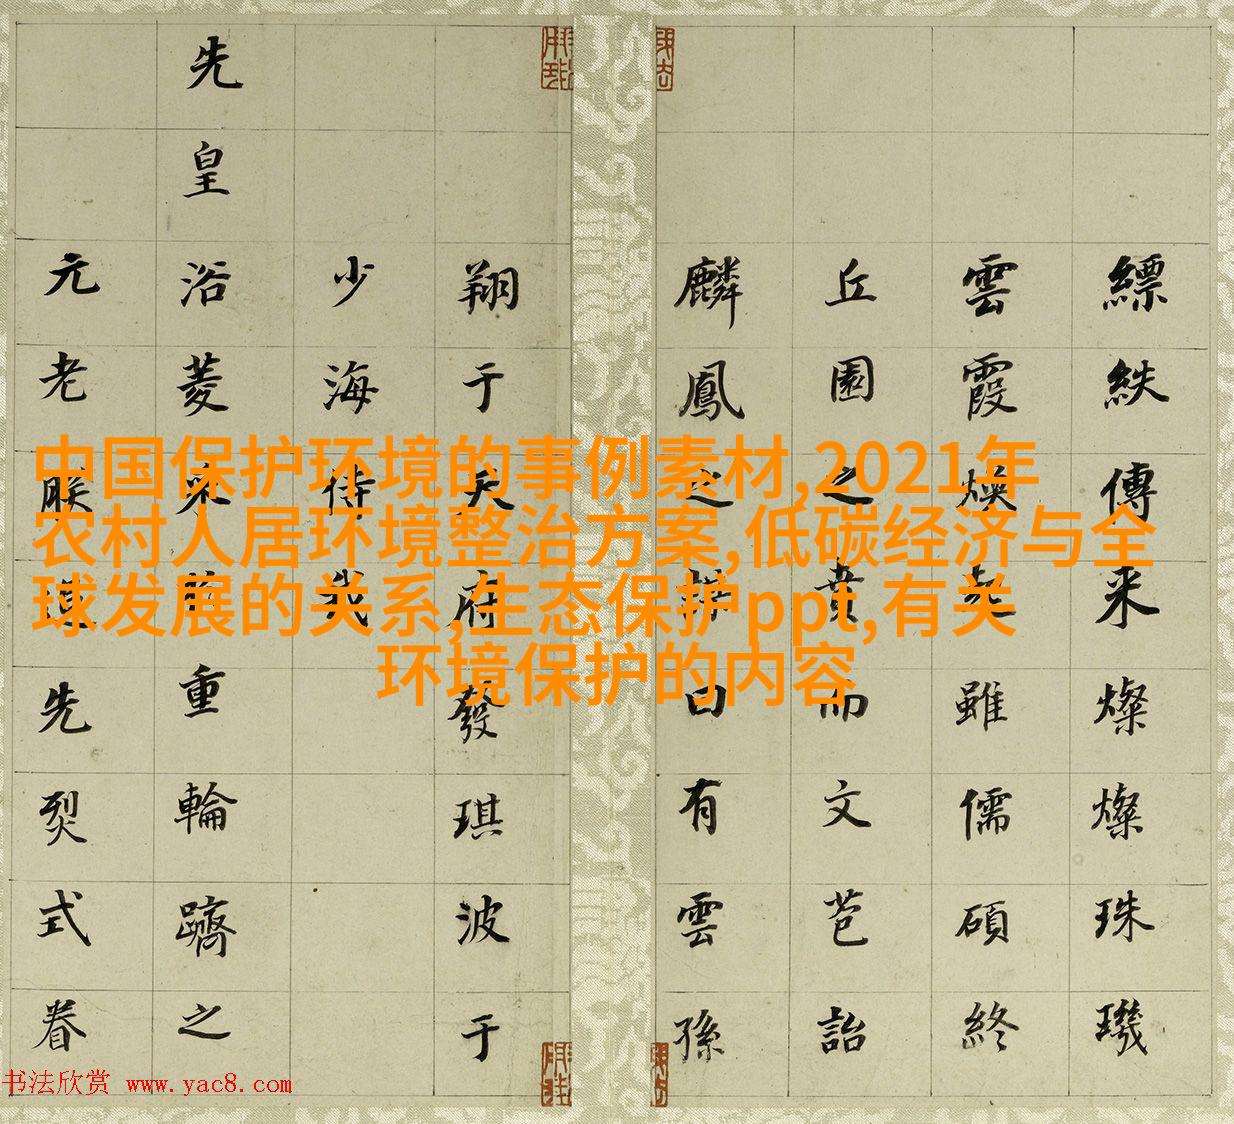 中国保护环境的事例素材,2021年
农村人居环境整治方案,低碳经济与全
球发展的关系,生态保护ppt,有关
环境保护的内容
縹紩傳采燦燦珠璣
雲霞煥雖儒碩終
丘園之賁而文芑詒
麟鳳之曰有雲孫
翔于天府發琪波于
少海侍我
先皇浴菱重輪躋之
元老朕先烈式眷
书法欣赏 www.yac8.com